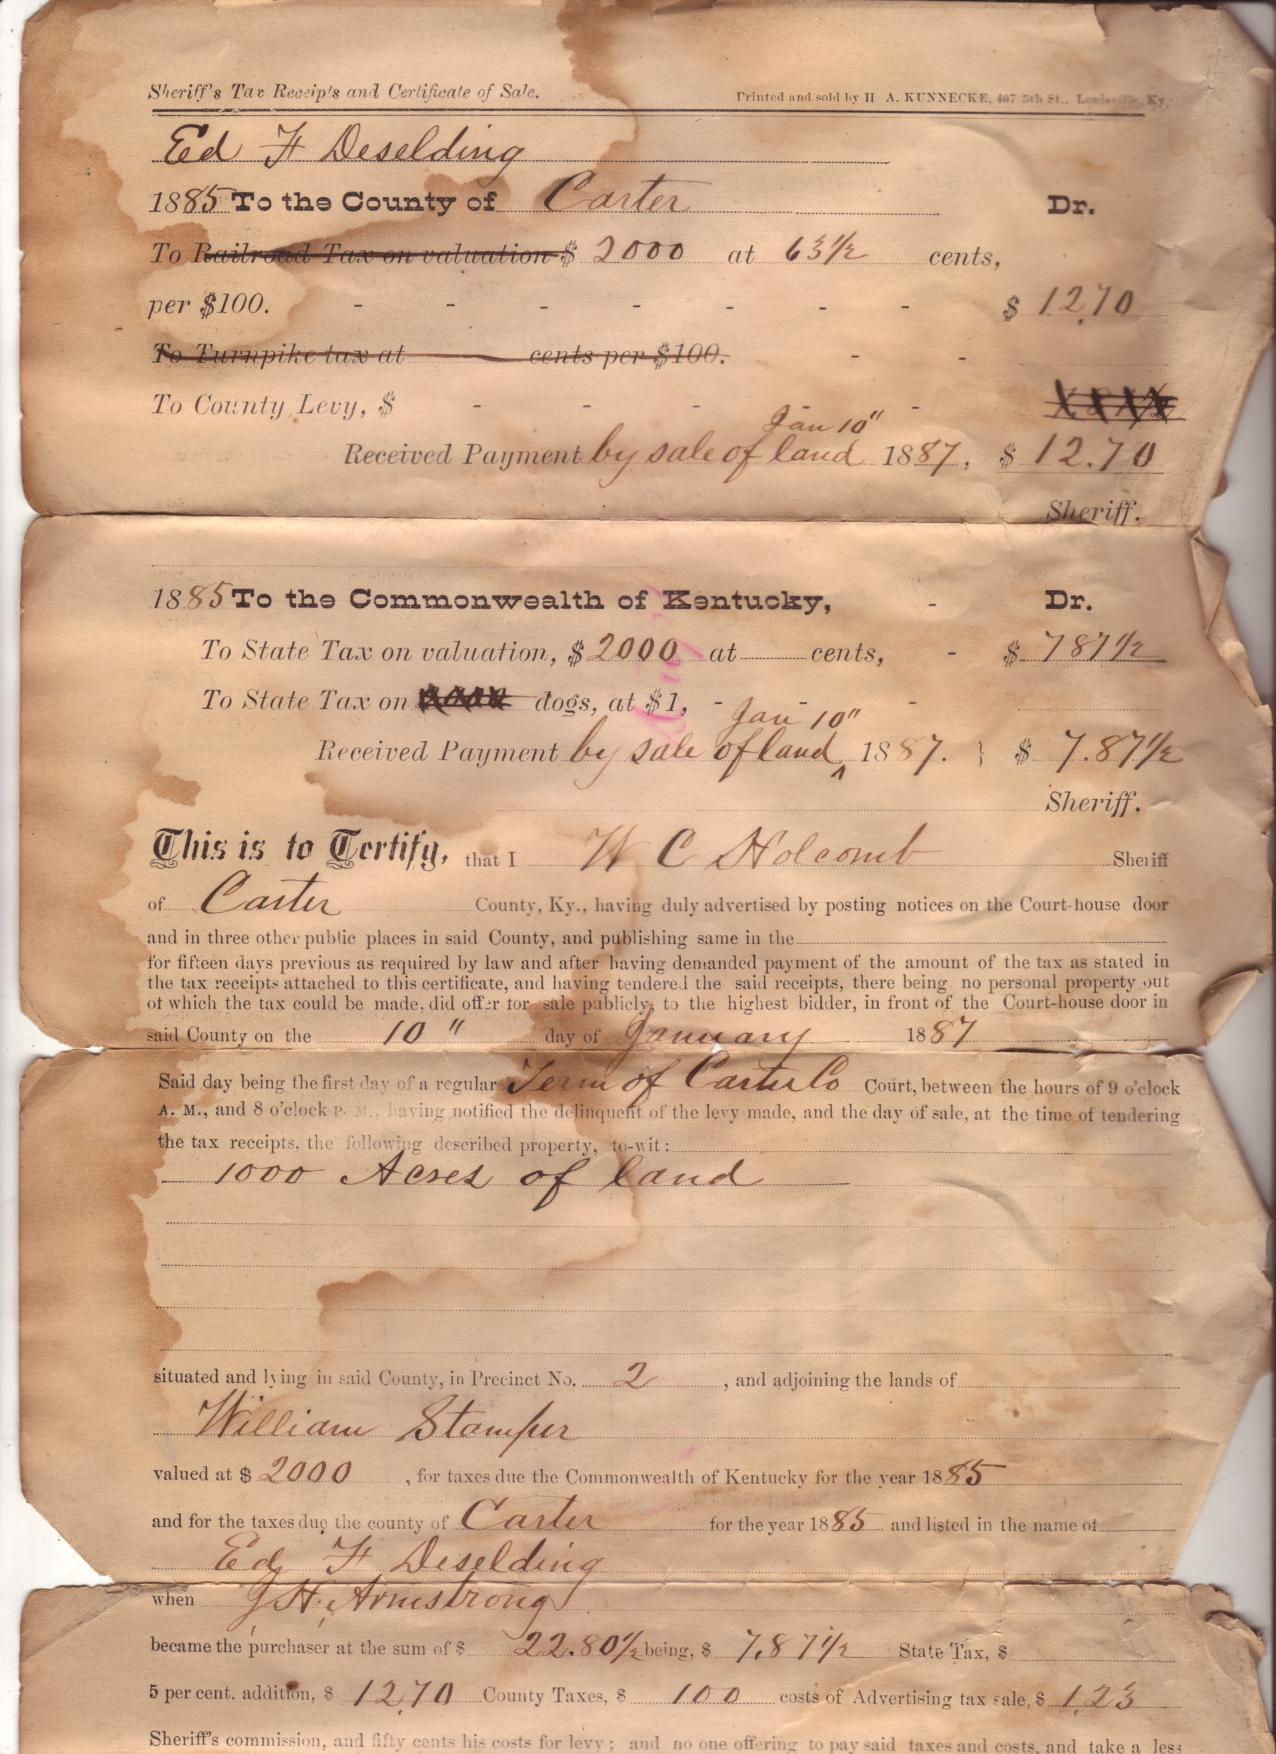 Sheriff's Tax Receipts and Certificate of Sale.
Printed and sold by H A. KUNNECKE, 407 5th St., Louisville, Ky.
Ed F Deselding
1885 To the County of Carter Dr.
To Railroad Tax on valuation $ 2000 at 63½ cents,
per $100. - - - - - - - $ 12.70
To Turnpike tax at cents per $100. - -
To County Levy, $ - - - - -
Jan 10"
Received Payment by sale of land 1887, $ 12.70
Sheriff.
1885 To the Commonwealth of Kentucky, - Dr.
To State Tax on valuation, $ 2000 at cents, - $ 787½
To State Tax on dogs, at $1, - - -
Jan 10"
Received Payment by sale of land ^ 1887. } $ 7.87½
Sheriff.
This is to Certify, that I W C Holcomb Sheriff
of Carter County, Ky., having duly advertised by posting notices on the Court-house door
and in three other public places in said County, and publishing same in the
for fifteen days previous as required by law and after having demanded payment of the amount of the tax as stated in
the tax receipts attached to this certificate, and having tendered the said receipts, there being no personal property out
of which the tax could be made, did offer for sale publicly, to the highest bidder, in front of the Court-house door in
said County on the 10" day of January 1887
Said day being the first day of a regular Term of Carter Co Court, between the hours of 9 o'clock
A. M., and 8 o'clock P. M., having notified the delinquent of the levy made, and the day of sale, at the time of tendering
the tax receipts, the following described property, to-wit:
1000 Acres of land
situated and lying in said County, in Precinct No. 2 , and adjoining the lands of
William Stamper
valued at $ 2000 , for taxes due the Commonwealth of Kentucky for the year 1885
and for the taxes due the county of Carter for the year 1885 and listed in the name of
Ed F Deselding
when J H. Armstrong
became the purchaser at the sum of $ 22.80½ being, $ 7.87½ State Tax, $
5 per cent. addition, $ 12.70 County Taxes, $ 100 costs of Advertising tax sale, $ 1.23
Sheriff's commission, and fifty cents his costs for levy; and no one offering to pay said taxes and costs, and take a less